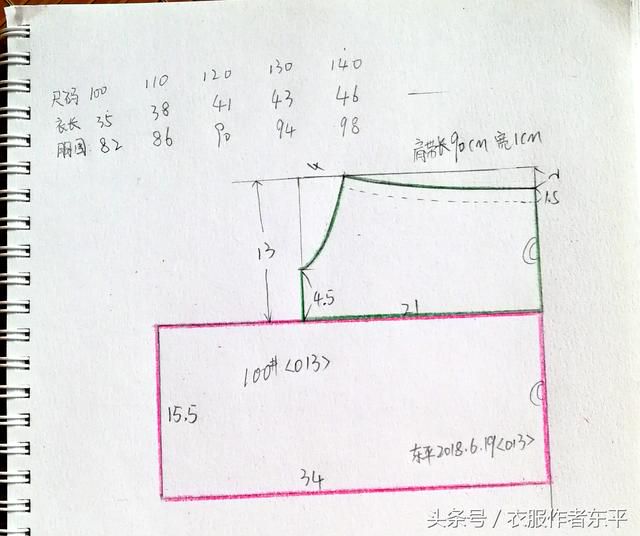 尺码 100 110 120 130 140
衣长 35 38 41 43 46
胸围: 82 86 90 94 98
肩带长90cm 宽1cm
4
2
1.5
13
4.5
21
100# <013>
15.5
东平2018.6.19<013>
34
头条号 / 衣服作者东平